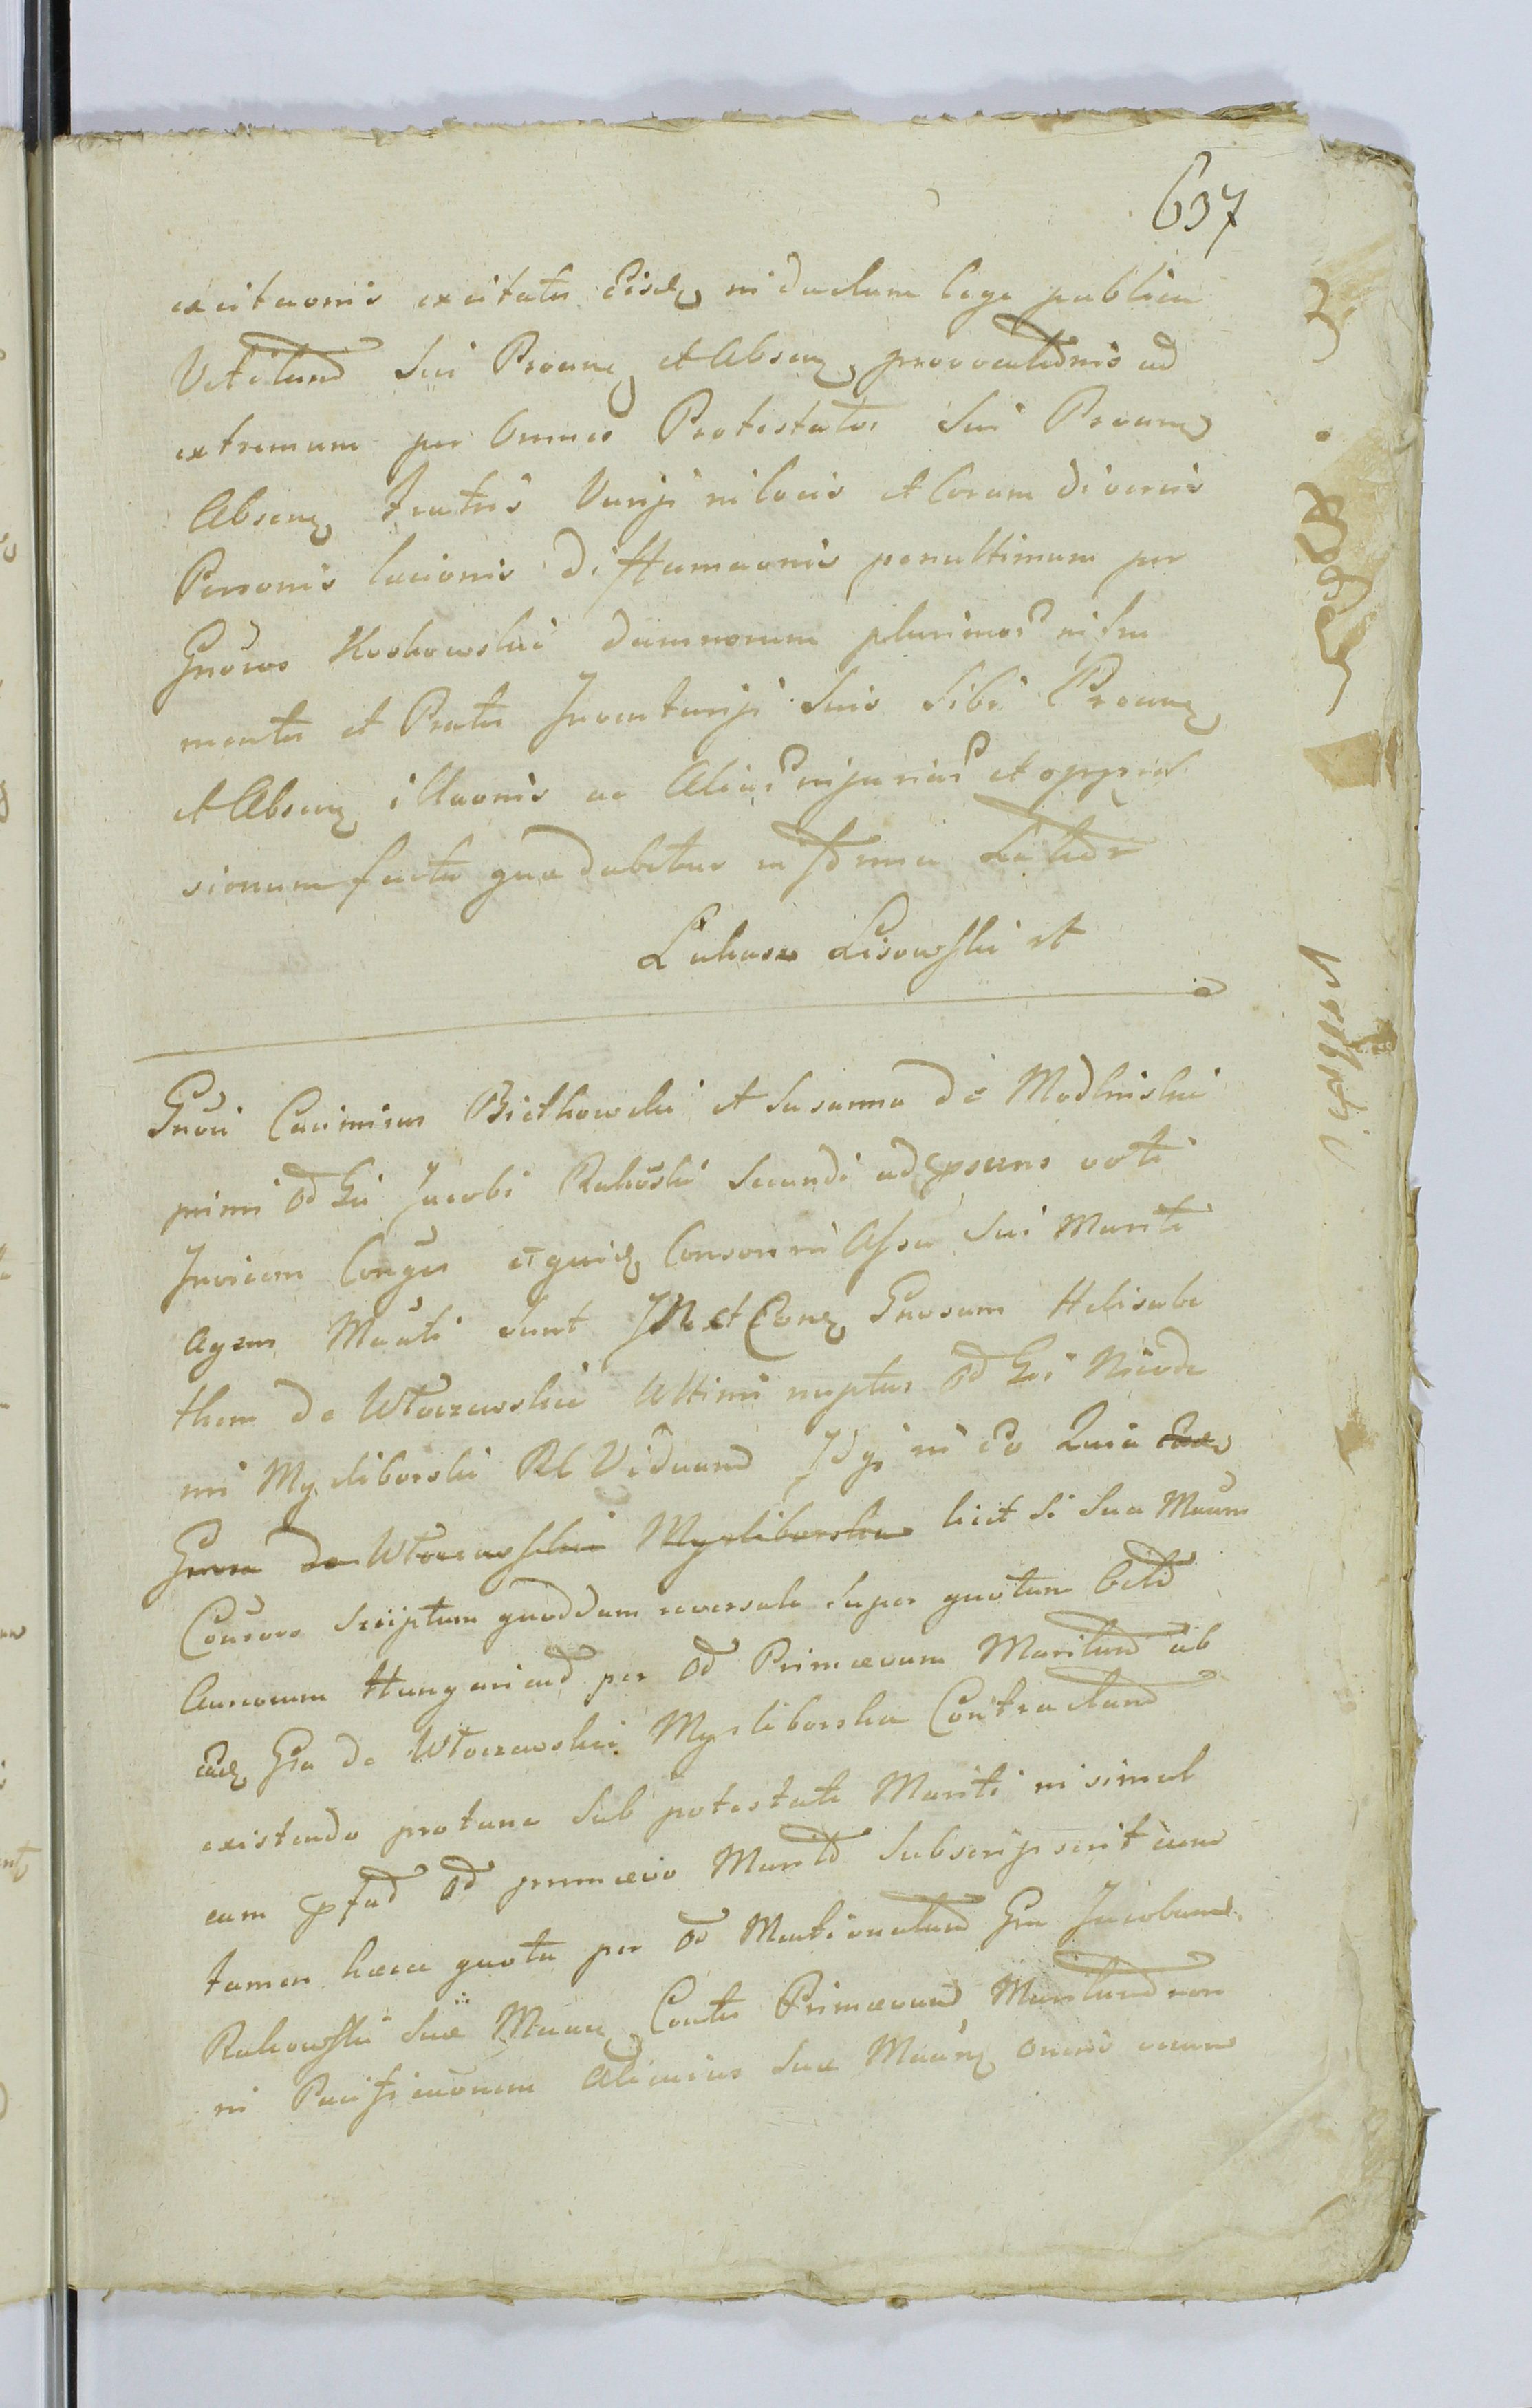 637
excitaonis excitatu Eisdq in duelum lege publica
Vetitum Sui Proanq et Absenq provocationis ad
extremum per Omnes Protestatos Sui Proanq
Absenq fratris Varijs in locis et Coram diversis
Personis lacionis diffamaonis penultimum per
Gnosos Koskowskie damnorum plurimor in fru
mentis et Pratis Inventarijs Suis Sibi Proanq
et Absenq illaonis ac Aliar injuriar et oppres
sionum facta quae dabitur in forma Latiori
Lukasz Lisowski et
Gnosi Casimirus Bietkowski et Susanna de Modlinskie
primi od Gsi Jacobi Rakoski Secundi ad psens voti
Invicem Conges et quidq Consors in Assa Sui Mariti
Agens Maoti Sunt et Conq Gnosam Helisabe
tham de Wtoczewskie Ultimi nuptus Od Gsi Nicode
mi Mysliborski Rel Viduam Idq in eo Quia eadq
Gnosa de Wtoczewskie Mysliborska licet Si Sua Maona
Consors Scriptum quoddam reversale Super quotam
Aureorum Hungaricad per Od Primaevum Maritum ab
eadq Gsa de Wtoczewskie Mysliborska Contractam
existendo protunc Sub potestate Mariti in simul
cum pfad Od primaevo Marito Subscripserit cum
tamen haec quota per Od Mentionatum Gsu Jacobum
Rakowski Suae Maanq Contis Primaevum Maritum non
in Pacificaonem Alicuius Suae Maanq oneris verum